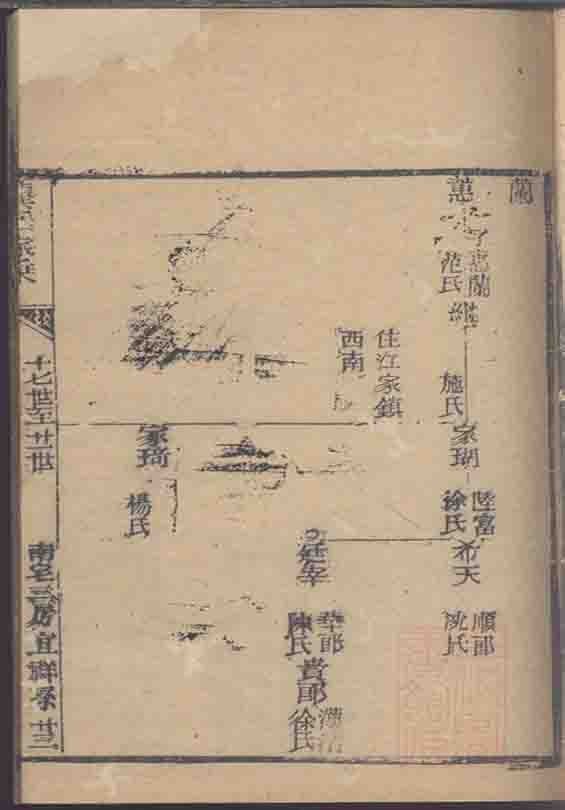 蘭
蕙
惠蘭
范氏
施氏
家瑚
陸富
徐氏
希天
順郎
沈氏
住江家鎮
西南
廷宰
華郎
陳氏
貴郎
徐氏
家琦
楊氏
家乘
十七世至廿世
南宅三房宜祥系
廿三